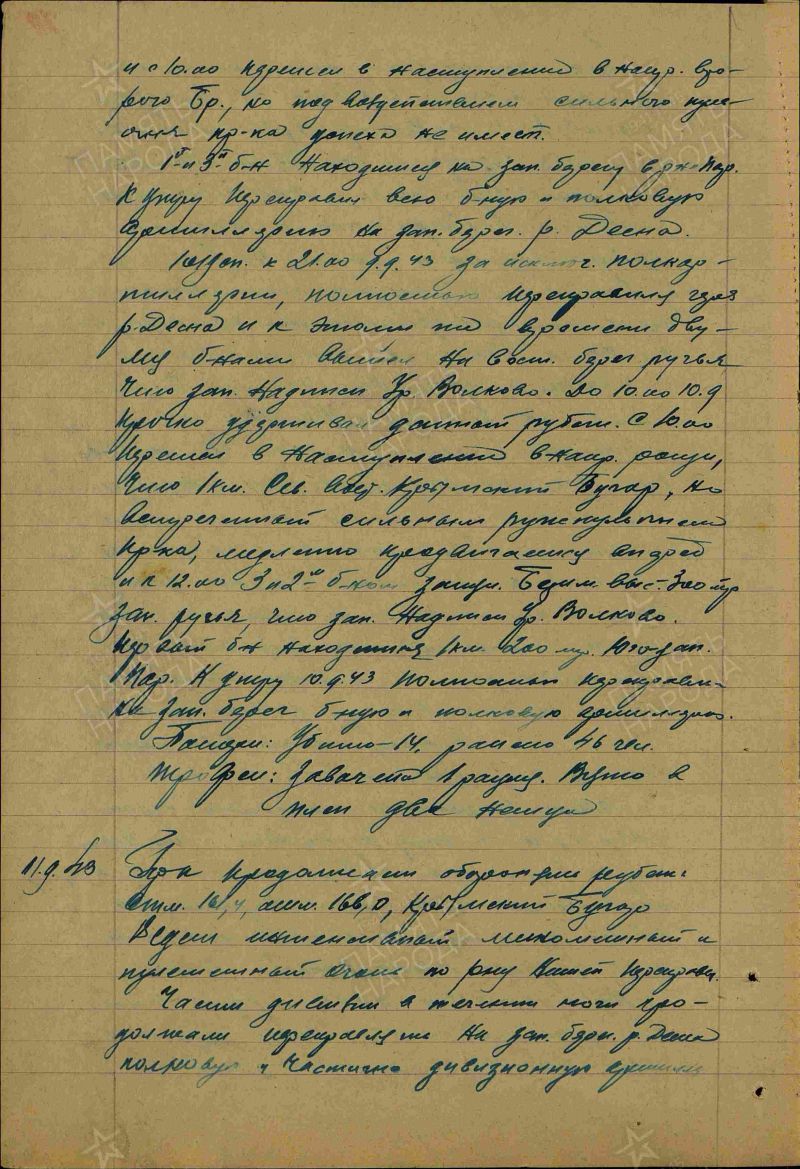 и с 10.00 перешел в наступление в напр. вто-
рого Бр., но под воздействием сильного
огня пр-ка успеха не имеет.
1й и 3й б-н находится на зап. берегу в р-не пер.
К утру переправил всю б-ную и полковую
артиллерию на зап. берег. р. Десна.
к 21.00 9.9.43 за исключ. полкар-
тиллерии, полностью переправился через
р. Десна и к этому же времени дву-
мя б-нами вышел на вост. берег ручья
что зап. надписи Ур. Волково. До 10.00 10.9
прочно удерживал данный рубеж. С 10.00
перешел в наступление в напр. рощи,
что 1 км. сев. вост. Крымский Бугор, но
встреченный сильным руж.пул.огнем
пр-ка, медленно продвигались вперед
и к 12.00 3 и 2й б-ном Безим. выс. 300 мтр
зап. ручья, что зап. надписи Ур. Волково.
Первый б-н находится 1 км. 200 мтр. юго-зап.
Пер. К утру 10.9.43 полностью переправлен
на зап. берег б-ную и полковую артиллерию.
Потери: Убито-14, ранено 46 чел.
Трофеи: Захвачена 1 рация. Взято в
плен два немца
11.9.43 Пр-к продолжает оборонять рубеж:
отм. 161,4, отм. 166,0, Крымский Бугор
Ведет интенсивный мин. и
пулеметный огонь по р-ну нашей переправы.
Части дивизии в течении ночи про-
должали переправлять на зап. берег. р. Десна
полковую и частично дивизионную артилле